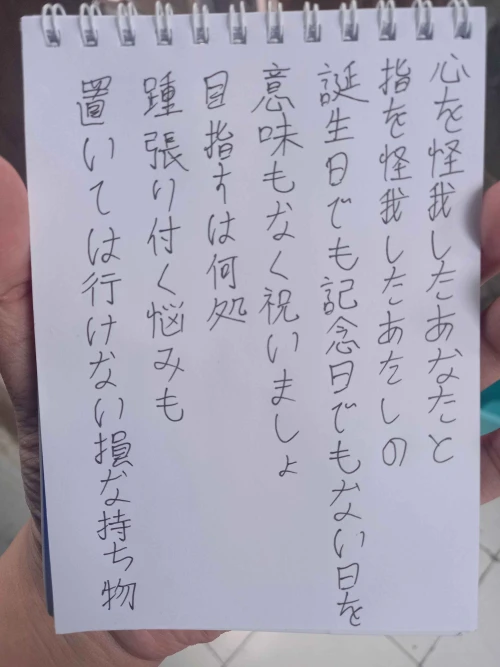 心を怪我したあなたと
指を怪我したあたしの
誕生日でも記念日でもない日を
意味もなく祝いましょ
目指すは何処
踵張り付く悩みも
置いては行けない損な持ち物